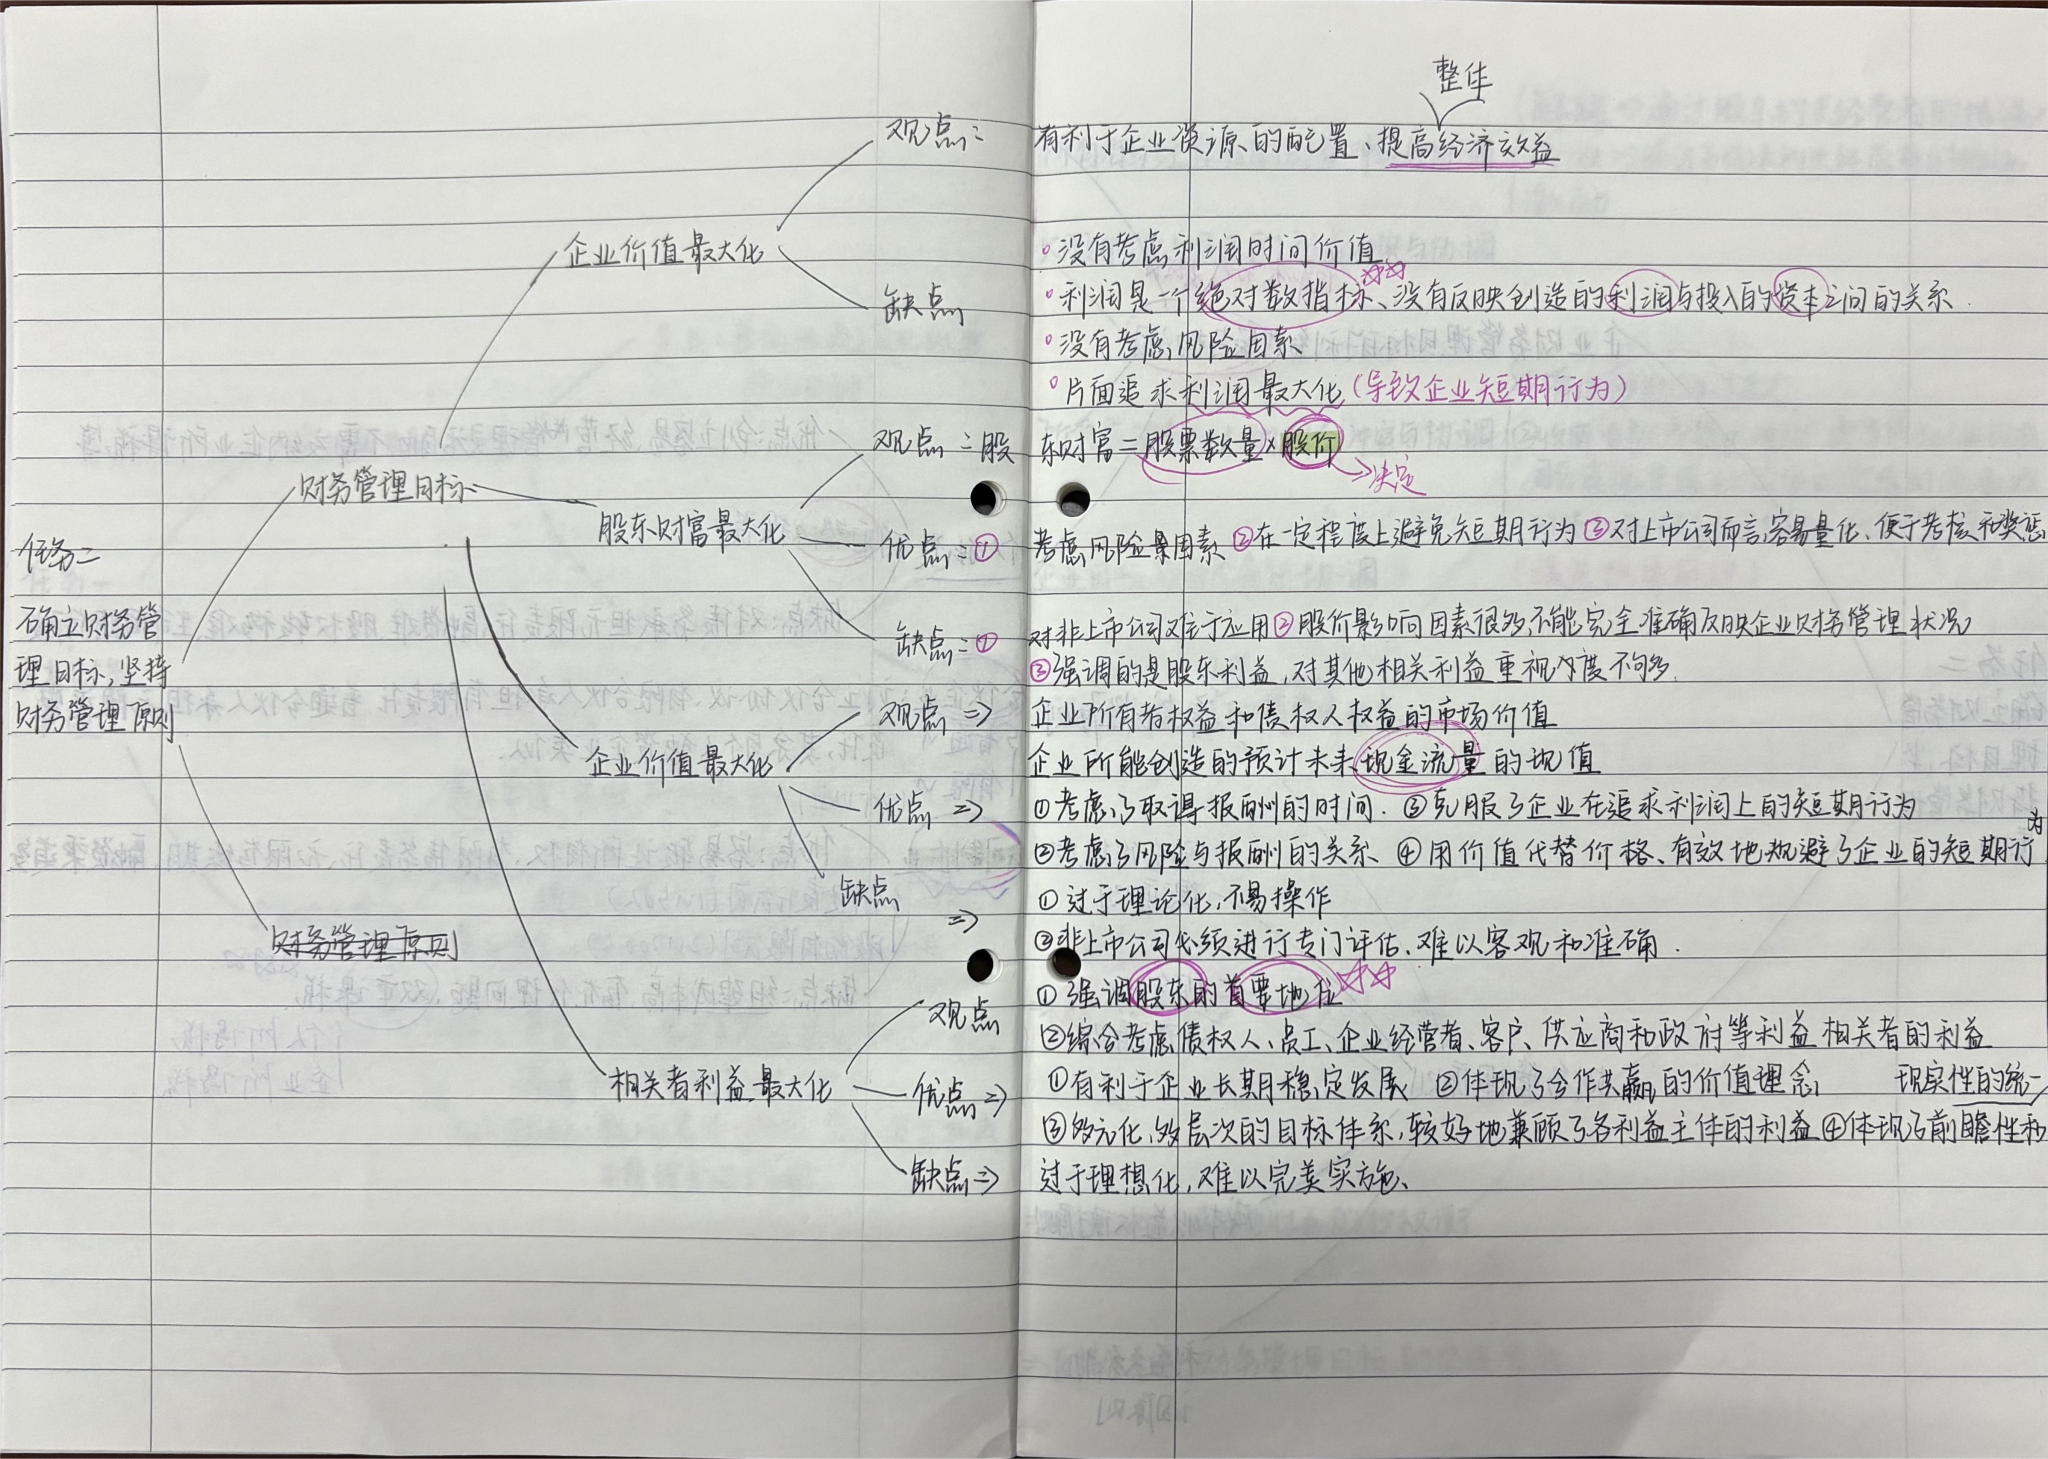 整体
观点： 有利于企业资源的配置、提高经济效益
企业价值最大化
缺点
没有考虑利润时间价值
利润是一个绝对数指标、没有反映创造的利润与投入的资本之间的关系.
没有考虑风险因素
片面追求利润最大化（导致企业短期行为）
任务二
确立财务管
理目标，坚持
财务管理原则
财务管理目标
股东财富最大化
观点：股东财富=股票数量×股价
→决定
优点：① 考虑风险因素 ②在一定程度上避免短期行为 ③对上市公司而言，容易量化、便于考核和奖惩
缺点：① 对非上市公司难于应用 ②股价影响因素很多，不能完全准确反映企业财务管理状况
③强调的是股东利益，对其他相关利益重视力度不够.
企业价值最大化
观点 => 企业所有者权益和债权人权益的市场价值
企业所能创造的预计未来现金流量的现值
优点 => ①考虑了取得报酬的时间. ③克服了企业在追求利润上的短期行为
②考虑了风险与报酬的关系 ④用价值代替价格、有效地规避了企业的短期行为
缺点 => ①过于理论化，不易操作
②非上市公司必须进行专门评估、难以客观和准确.
财务管理原则
相关者利益最大化
观点 ①强调股东的首要地位
②综合考虑债权人、员工、企业经营者、客户、供应商和政府等利益相关者的利益
优点=> ①有利于企业长期稳定发展 ②体现了合作共赢的价值理念 现实性的统一
③多元化，多层次的目标体系，较好地兼顾了各利益主体的利益 ④体现了前瞻性和
缺点=> 过于理想化，难以完美实施、